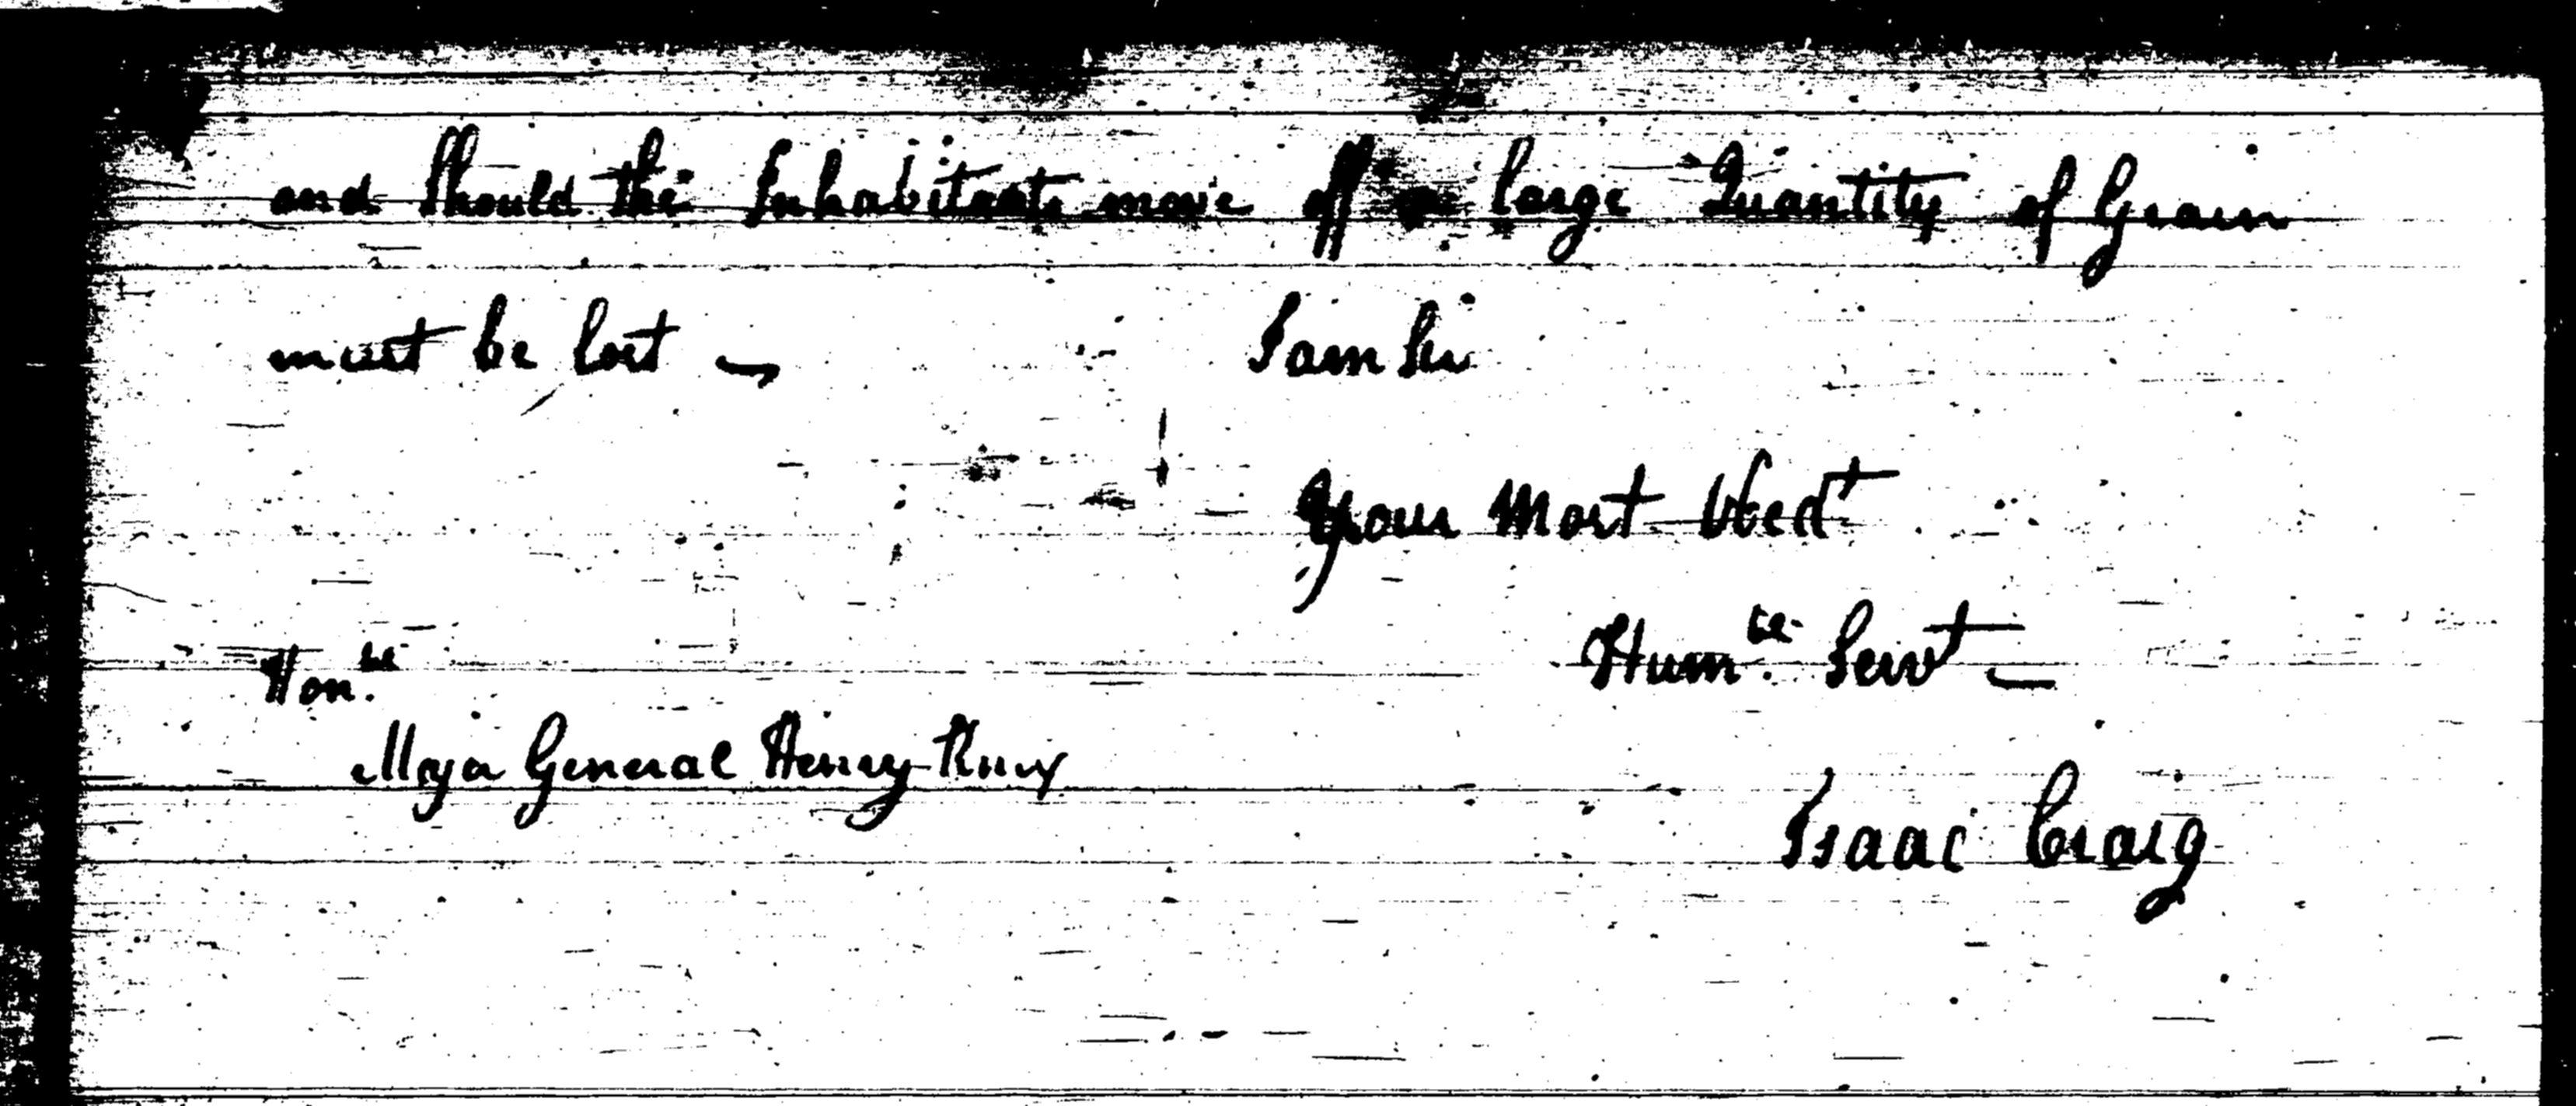 and Should the Inhabitants move off a large Quantity of Grain
must be lost —
I am Sir
Your Most Obedt
Humble Servt —
Honble
Majr General Henry Knox
Isaac Craig